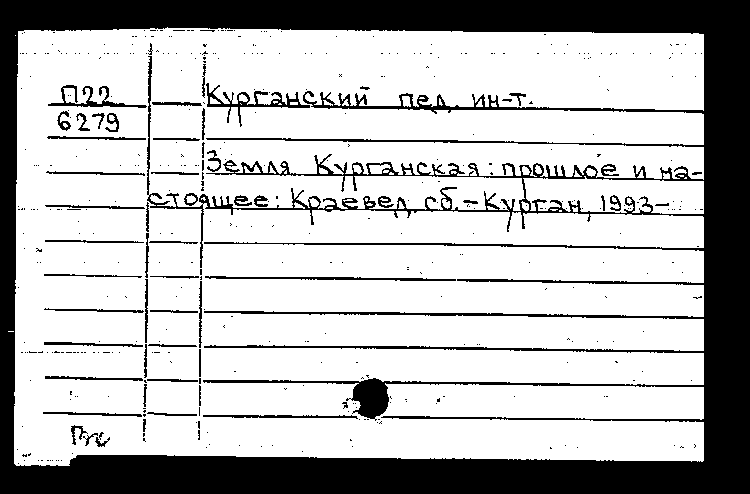 П22
6279
Курганский пед. ин-т.
Земля Курганская: прошлое и на-
стоящее: Краевед. сб. – Курган, 1993–